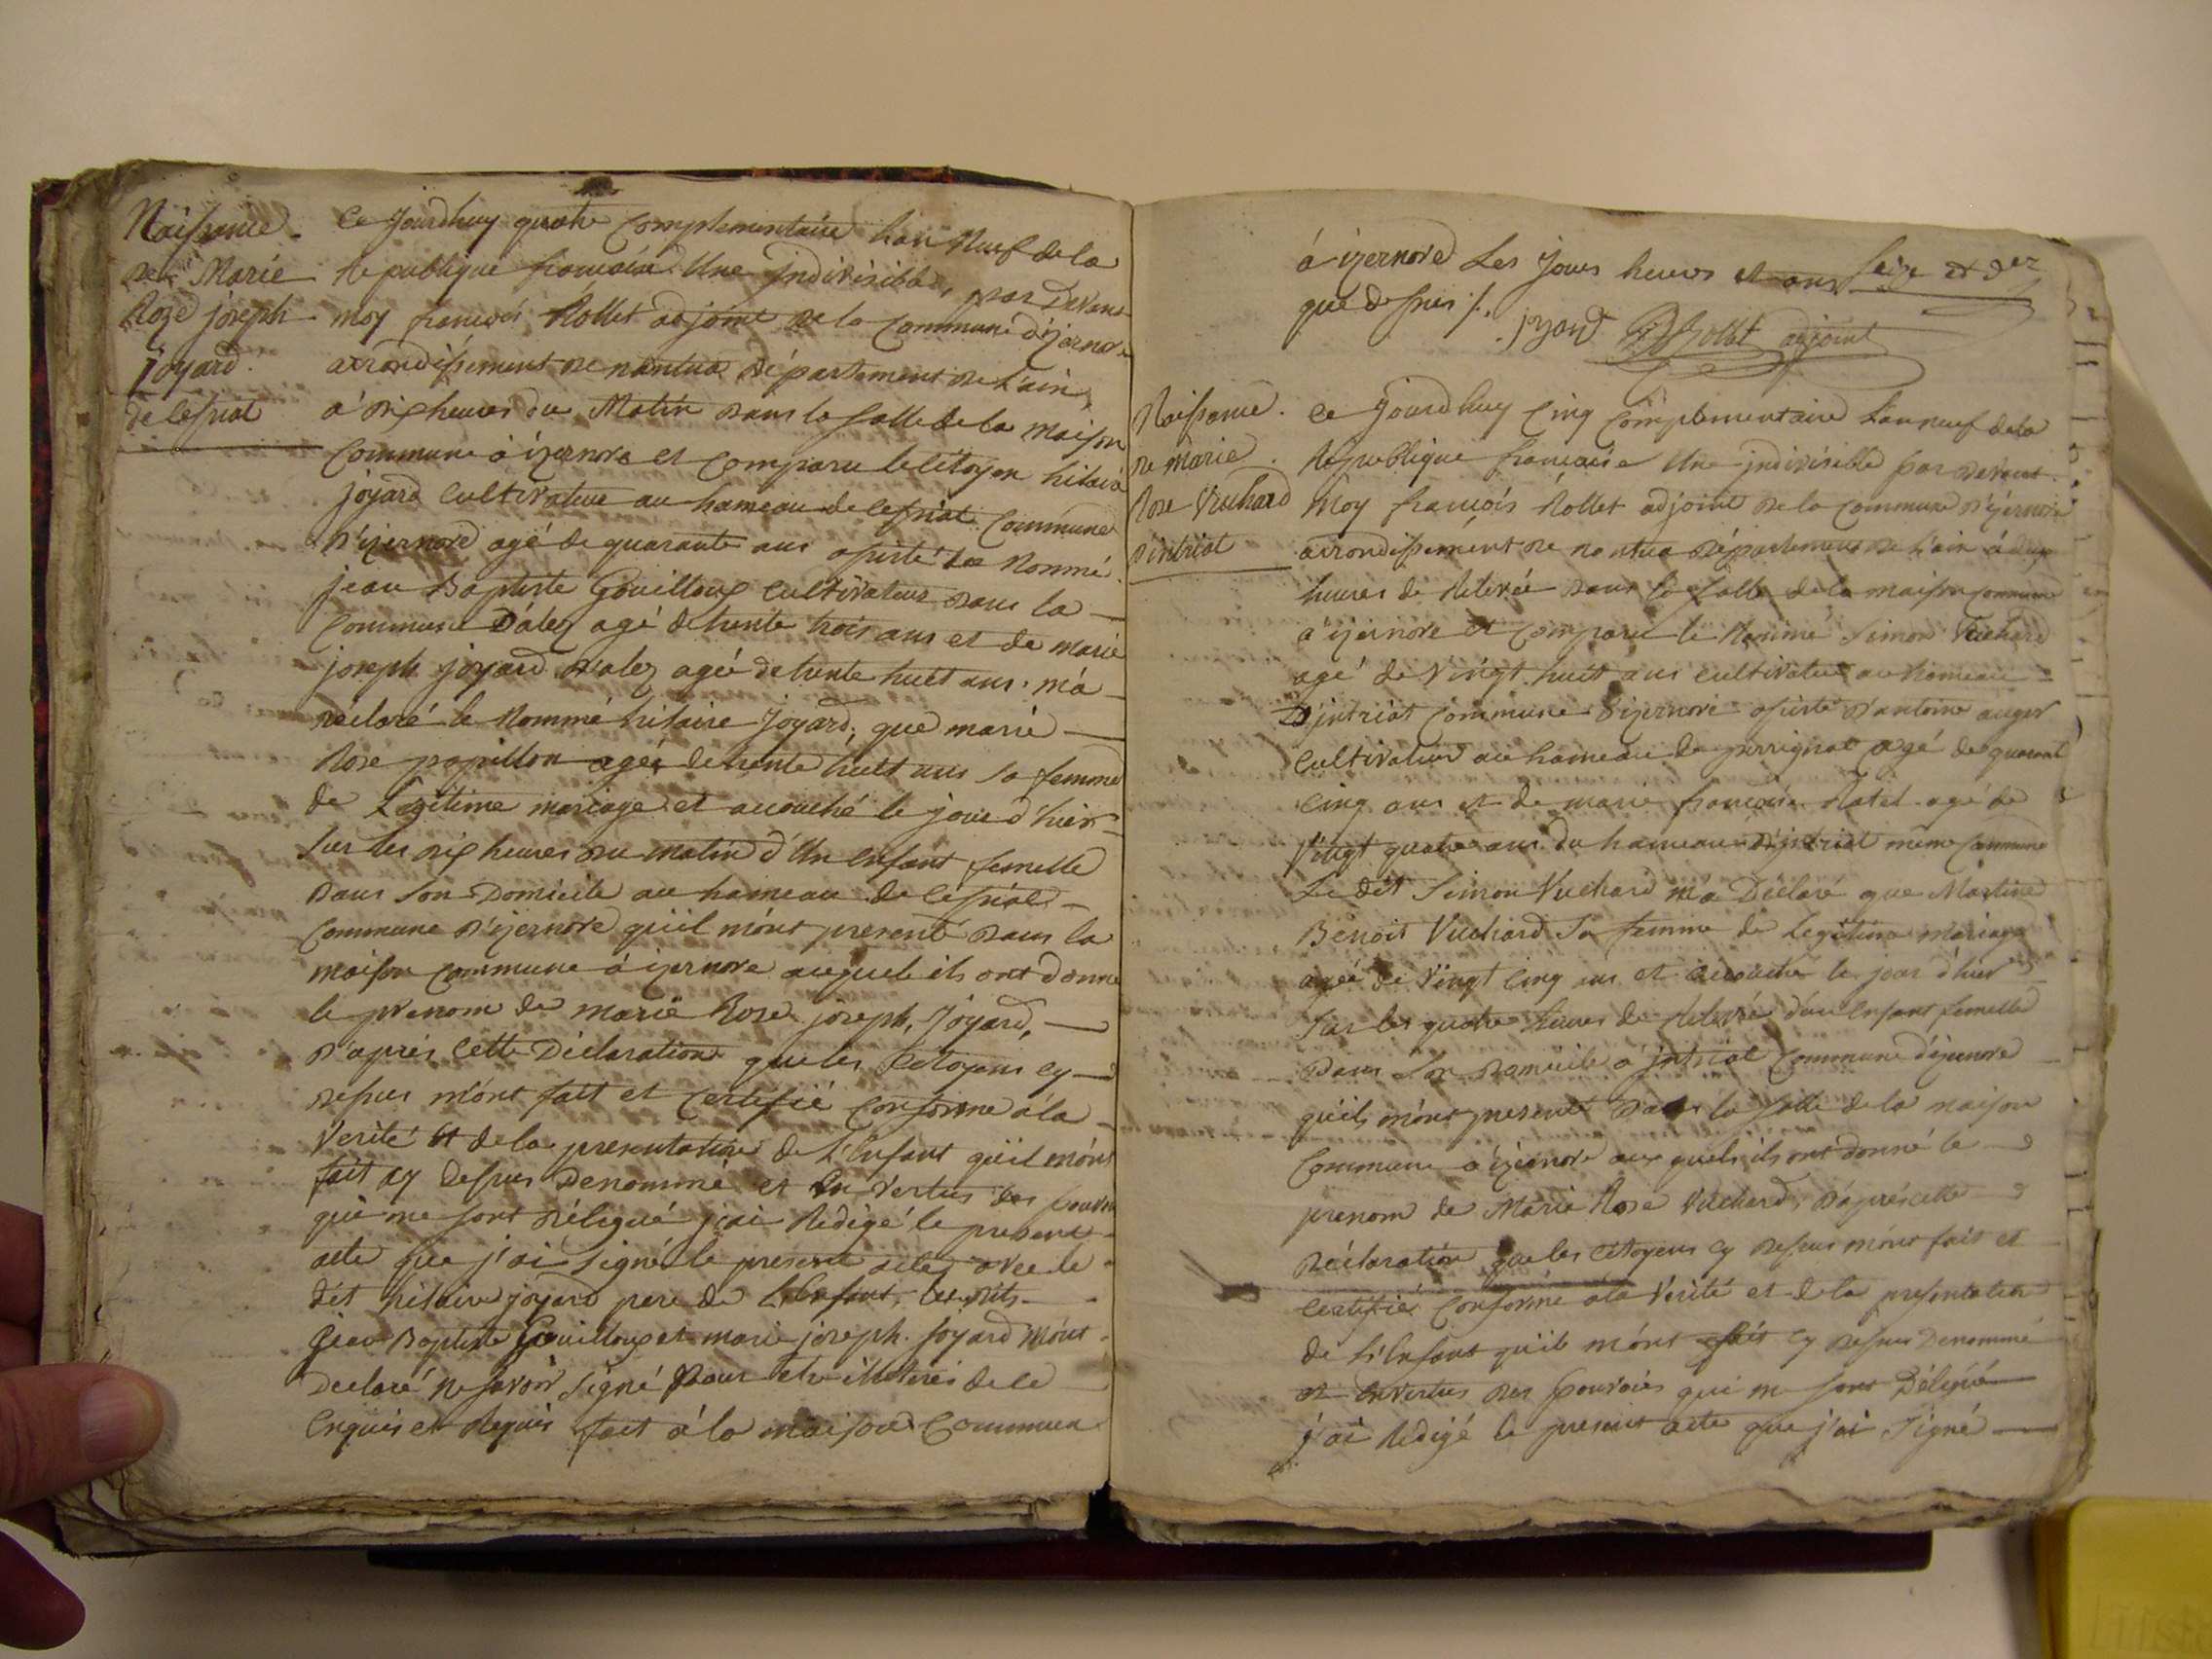 Naissance
de Marie
Roze joseph
joyard.
de lessiat
Ce Jourdhuy quatre Complementaire lan Neuf de la
Republique francaise Une Jndivisible, par Devant
moy francois Rollet adjoint de la Commune d'izernore
arrondissement de nantua département de L'ain,
a dix heures du Matin dans la salle de la maison
Commune a izernore et Comparu le Citoyen hilaire
joyard Cultivateur au hameau de lessiat Commune
d'izernore agé de quarante ans assisté de Nommé
jean Baptiste Gouilloux Cultivateur dans la
Commune D'alez agé de trente trois ans et de marie
joseph joyard dalez ageé de trente huit ans. m'a
déclaré le Nommé hilaire Joyard, que marie
Rose papillon ageé de trente huit ans sa femme
de Legitime mariage et accouché le jour d'hier
sur les dix heures du matin d'Un Enfant femelle
dans son Domicile au hameau de lessiat
Commune d'izernore quil m'ont presenté dans la
maison Commune á izernore auquel ils ont donné
le prenom de marie Rose joseph, Joyard,
d'aprés Cette Déclaration que les Citoyens Cy
dessus m'ont fait et Certifié Conforme á la
Verité et de la presentation de L'Enfant quil m'ont
fait cy dessus Denommé et En Vertus des pouvoirs
qui me sont délégué j'ai Rédigé le present
acte que j'ai signé le present acte avec le
dit hilaire joyard pere de L'Enfant, les dits
Jean Baptiste Gouilloux et marie joseph. joyard m'ont
Declaré ne savoir signé pour etre illiteré de ce
Enquis et Requis fait á la maison Commune
á izernore Les Jours heures et ans
que dessus /. joyard Rollet adjoint
Naissance.
de marie
Rose Vuchard
d'intriat
Ce Jourdhuy Cinq Complementaire L'an neuf de la
Republique francaise Une jndivisible par devant
Moy francois Rollet adjoint de la Commune d'izernore
arrondissement de nantua Département de L'ain á
heures de Relevée dans la salle de la maison Commune
á izernore et Comparu le Nommé Simon Vuchard
agé de Vingt huit ans Cultivateur au hameau
D'jntriat Commune d'izernore assisté d'antoine auger
Cultivateur au hameau de perrignat agé de quarante
Cinq ans et de marie francoise Ratel agé de
Vingt quatre ans du hameau D'jntriat méme Commune
Le dit Simon Vuchard m'a Déclaré que Martine
Benoit Vuchard sa femme de Legitime mariage
ageé de Vingt Cinq ans et accouché le jour d'hier
sur les quatre heures de Relevée d'un Enfant femelle
dans son Domicile á jntriat Commune d'izernore
quils m'ont presenté Dans la salle de la maison
Commune á izernore auxquels ils ont donné le
prenom de Marie Rose Vuchard, d'aprés Cette
Déclaration que les Citoyens Cy dessus m'ont fait et
Certifié Conforme á la Verité et de la presentation
de L'Enfant quils m'ont fait cy dessus Denommé
et En Vertus des pouvoirs qui me sont Délégué
j'ai Redigé le present acte que j'ai Signé